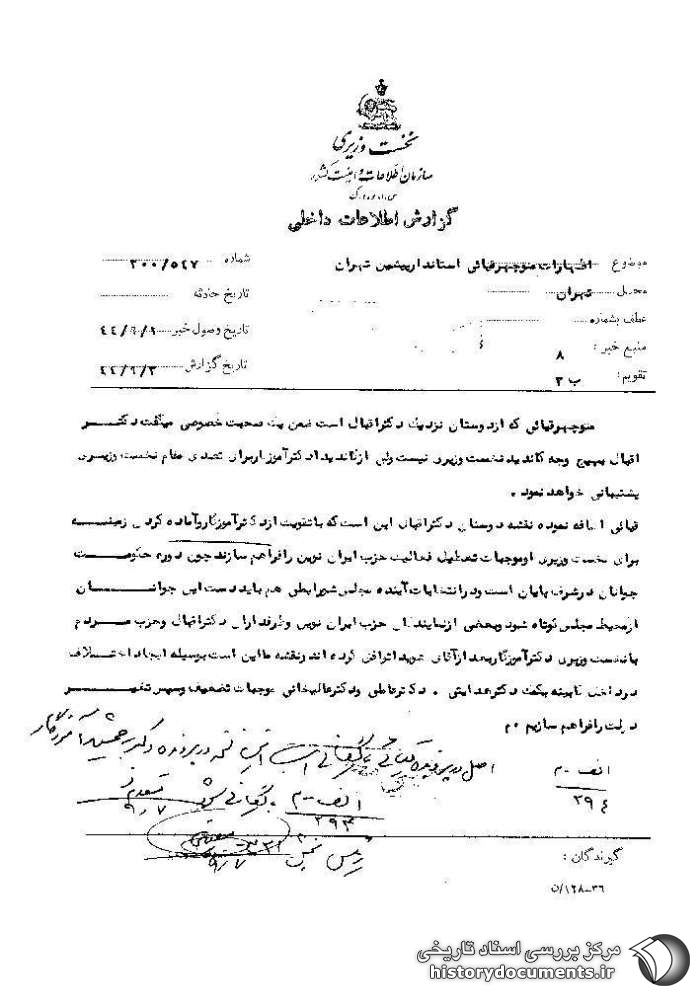 نخست وزیری
سازمان اطلاعات و امنیت کشور
س.ا.و.ا.ک
گزارش اطلاعات داخلی
موضوع اظهارات منوچهر قیائی استاندار پیشین تهران
شماره ۳۰۰/۵۴۷
محل تهران
تاریخ حادثه
عطف بشماره
تاریخ وصول خبر ۴۴/۹/۱
منبع خبر : ۸
تاریخ گزارش ۴۴/۹/۳
تقویم : ب ۳
منوچهر قیائی که از دوستان نزدیک دکتر اقبال است ضمن یک صحبت خصوصی میگفت دکتر
اقبال بهیچ وجه کاندید نخست وزیری نیست ولی از کاندیدا دکتر آموزگار برای تصدی مقام نخست وزیری
پشتیبانی خواهد نمود .
قیائی اضافه نموده نقشه دوستان دکتر اقبال این است که با تقویت از دکتر آموزگار و آماده کردن زمینه
برای نخست وزیری او موجبات تعطیل فعالیت حزب ایران نوین را فراهم سازند چون دوره حکومت
جوانان در شرف پایان است و در انتخابات آینده مجلس شورایملی هم باید دست این جوانان
از محیط مجلس کوتاه شود و بعضی از نمایندگان حزب ایران نوین و طرفداران دکتر اقبال و حزب مردم
با نخست وزیری دکتر آموزگار بعد از آقای هویدا توافق کرده اند و نقشه ما این است بوسیله ایجاد اختلاف
در داخل کابینه بکمک دکتر هدایتی . دکتر عاملی و دکتر عالیخانی موجبات تضعیف و سپس تغییر
دولت را فراهم سازیم م.
اصل در پرونده است این نسخه در پرونده دکتر جمشید آموزگار
الف - م
۲۹۴
الف - م
۲۹۳
بایگانی شود
۹/۷
رئیس بخش ۳۲۱
۹/۷
گیرندگان :
۳۶-۱۲۸/ن
مرکز بررسی اسناد تاریخی
historydocuments.ir